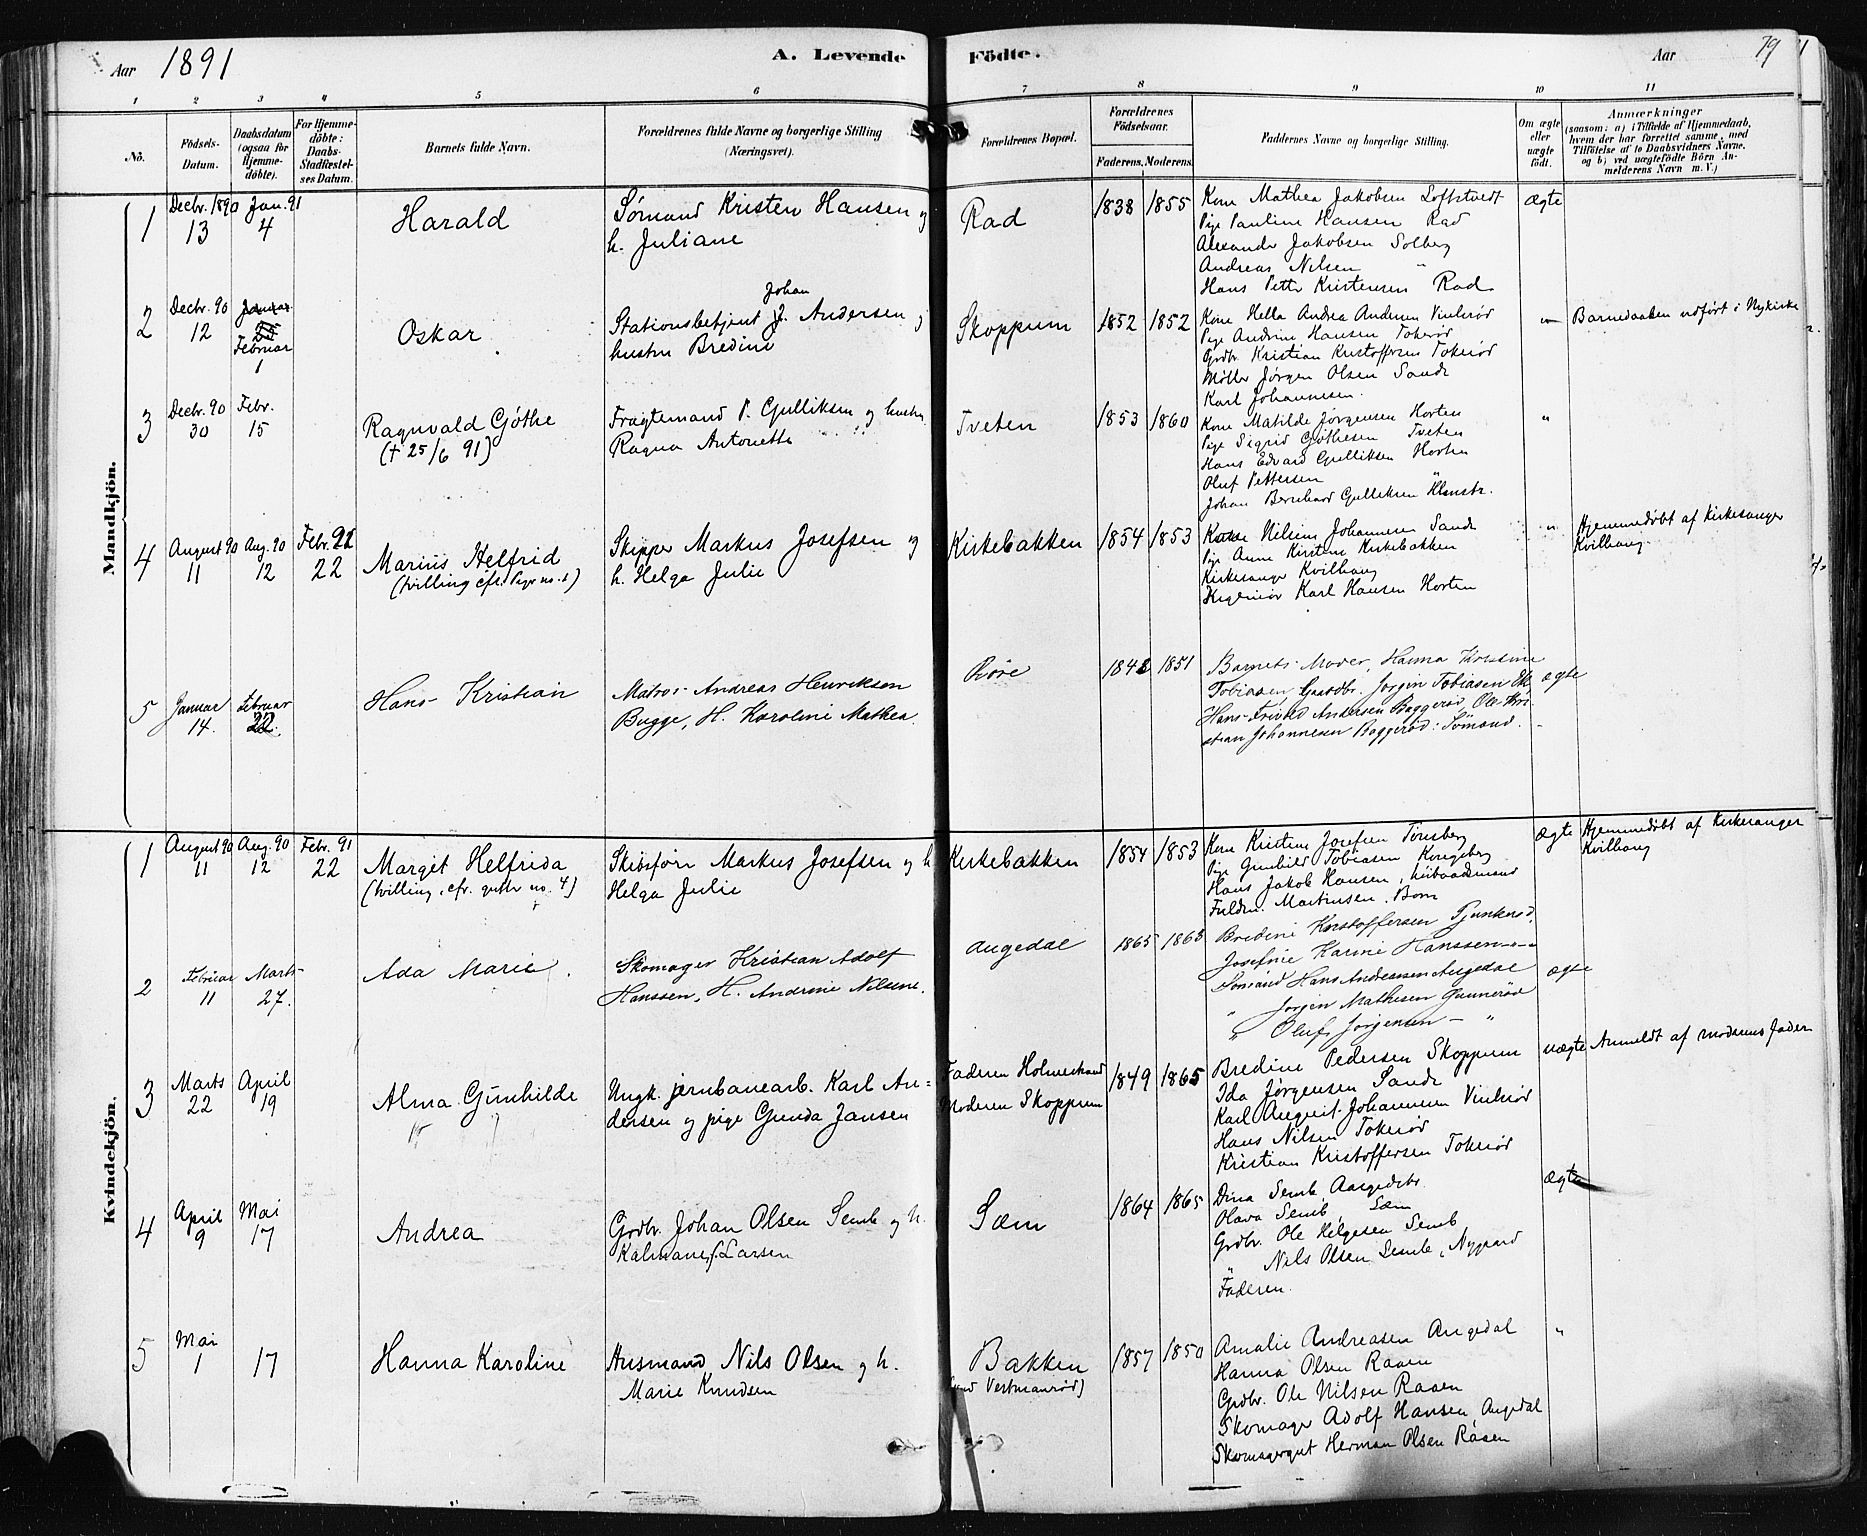 Aar 1891
A. Levende Födte.
Aar
79
1 2 3 4 5 6 7 8 9 10 11
No.
Födsels-Datum.
Daabsdatum (ogsaa for Hjemme-döbte).
For Hjemme-döbte: Daabs-Stadfæstel-ses Datum.
Barnets fulde Navn.
Forældrenes fulde Navne og borgerlige Stilling
(Næringsvei).
Forældrenes Bopæl.
Forældrenes Födselsaar.
Faderens. Moderens.
Faddernes Navne og borgerlige Stilling.
Om ægte eller uægte födt.
Anmærkninger
(saasom: a) i Tilfælde af Hjemmedaab,
hvem der har forrettet samme, med
Tilföielse af to Daabsvidners Navne,
og b) ved uægtefödte Börn An-
melderens Navn m. V.)
Mandkjön.
1
Decbr. 1890 13
Jan. 91 4
Harald
Sømand Kristen Hansen og
h. Juliane
Rad
1838 1855
Kone Mathea Jakobsen Loftstvedt
Pige Pauline Hansen Rad
Alexander Jakobsen Solberg
Andreas Nilsen "
Hans Petter Kristensen Rad
ægte
2
Decbr. 90 12
Januar
Februar 1
Oskar
Johan
Stationsbetjent J. Andersen og
hustru Bredine
Skoppum
1852 1852
Kone Hella Andrea Andersen Vinlerød
Pige Andrine Hansen Tokerød
Grdbr. Kristian Kristoffersen Tokerød
Møller Jørgen Olsen Sande
Karl Johannesen.
"
Barnedaaben udført i Nykirke
3
Decbr. 90 30
Febr. 15
Ragnvald Gøthe
(† 25/6 91)
Fragtemand P. Gulliksen og hustru
Ragna Antonette
Tveten
1853 1860
Kone Matilde Jørgensen Horten
Pige Sigrid Gøthesen Tveten
Hans Edvard Gulliksen Horten
Oluf Pettersen "
Johan Bernhard Gulliksen Holmestr.
"
4
August 90 11
Aug. 90 12
Febr. 91 22
Marius Helfrid
(tvilling cfr. Pige no. 1)
Skipper Markus Josefsen og
h. Helga Julie
Kirkebakken
1854 1853
Kone Nilsine Johannesen Sande
Pige Anne Kirstine Kirkebakken
Kirkesanger Kvilhaug
Karl Hansen Horten
"
Hjemmedøbt af Kirkesanger
Kvilhaug.
5
Januar 14.
Februar 22.
Hans Kristian
Matros Andreas Henriksen
Bugge, H. Karoline Mathea.
Røre
1842 1851
Barnets Moder, Hanna Kristine
Tobiasen, Gaardbr. Jørgin Tobiasen Ek,
Hans Andersen Baggerød, Ole Kri-
stian Johannesen Baggerød: Sømand.
ægte
Kvindekjön.
1
August 90 11
Aug. 90 12
Febr. 91 22
Margit Helfrida
(tvilling, cfr. gutter no. 4)
Skibsfører Markus Josefsen og h
Helga Julie
Kirkebakken
1854 1853
Kone Kristine Josefsen Tønsberg
Pige Gunhild Tobiasen Kongsberg
Hans Jakob Hansen,
Martinsen, Born
ægte
Hjemmedøbt af Kirkesanger
Kvilhaug
2
Februar 11
Marts 27.
Ada Marie.
Skomager Kristian Adolf
Hanssen, H. Andrine Nilsine.
Augedal
1865 1863
Bredine Kristoffersen
Josefine Karine Hanssen
Sømand Hans Andreassen Augedal
" Jørgin Mathisen Gunnerød
" Oluf Jørgensen — "
ægte
3
Marts 22
April 19
Alma Gunhilde
Ungk. jernbanearb. Karl An-
dersen og pige Gunda Jansen
Faderen Holmestrand
Moderen Skoppum
1849 1865
Bredine Pedersen Skoppum
Ida Jørgensen Sande
Karl August Johannesen Vinlerød
Hans Nilsen Tokerød
Kristian Kristoffersen Tokerød
uægte
Anmeldt af moderens fader
4
April 9
Mai 17
Andrea
Grdbr. Johan Olsen Semb og h.
Kalmane, f. Larsen
Sæm
1864 1865
Dina Semb
Olava Semb, Sæm
Grdbr. Ole Helgesen Semb
" Nils Olsen Semb, Nygaard
Faderen.
ægte
5
Mai 1
17
Hanna Karoline
Husmand Nils Olsen og h.
Marie Knudsen
Bakken
(und Vestmanrød)
1857 1850
Amalie Andreasen Augedal
Hanna Olsen Raaen
Grdbr. Ole Nilsen Raaen
Skomager Adolf Hansen, Augedal
Skomagergut Herman Olsen Raaen
"